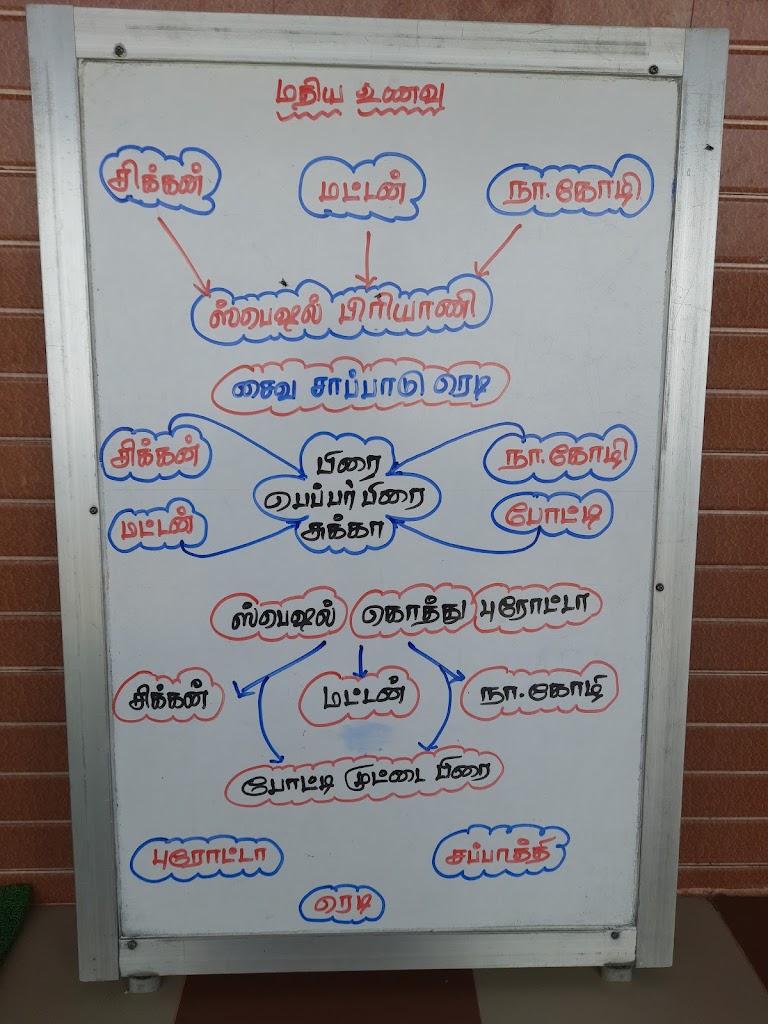 மதிய உணவு
சிக்கன் மட்டன் நா.கோழி
ஸ்பெஷல் பிரியாணி
சைவ சாப்பாடு ரெடி
சிக்கன் நா.கோழி
பிரை
பெப்பர் பிரை
மட்டன் போட்டி
சுக்கா
ஸ்பெஷல் கொத்து புரோட்டா
சிக்கன் மட்டன் நா.கோழி
போட்டி முட்டை பிரை
புரோட்டா சப்பாத்தி
ரெடி